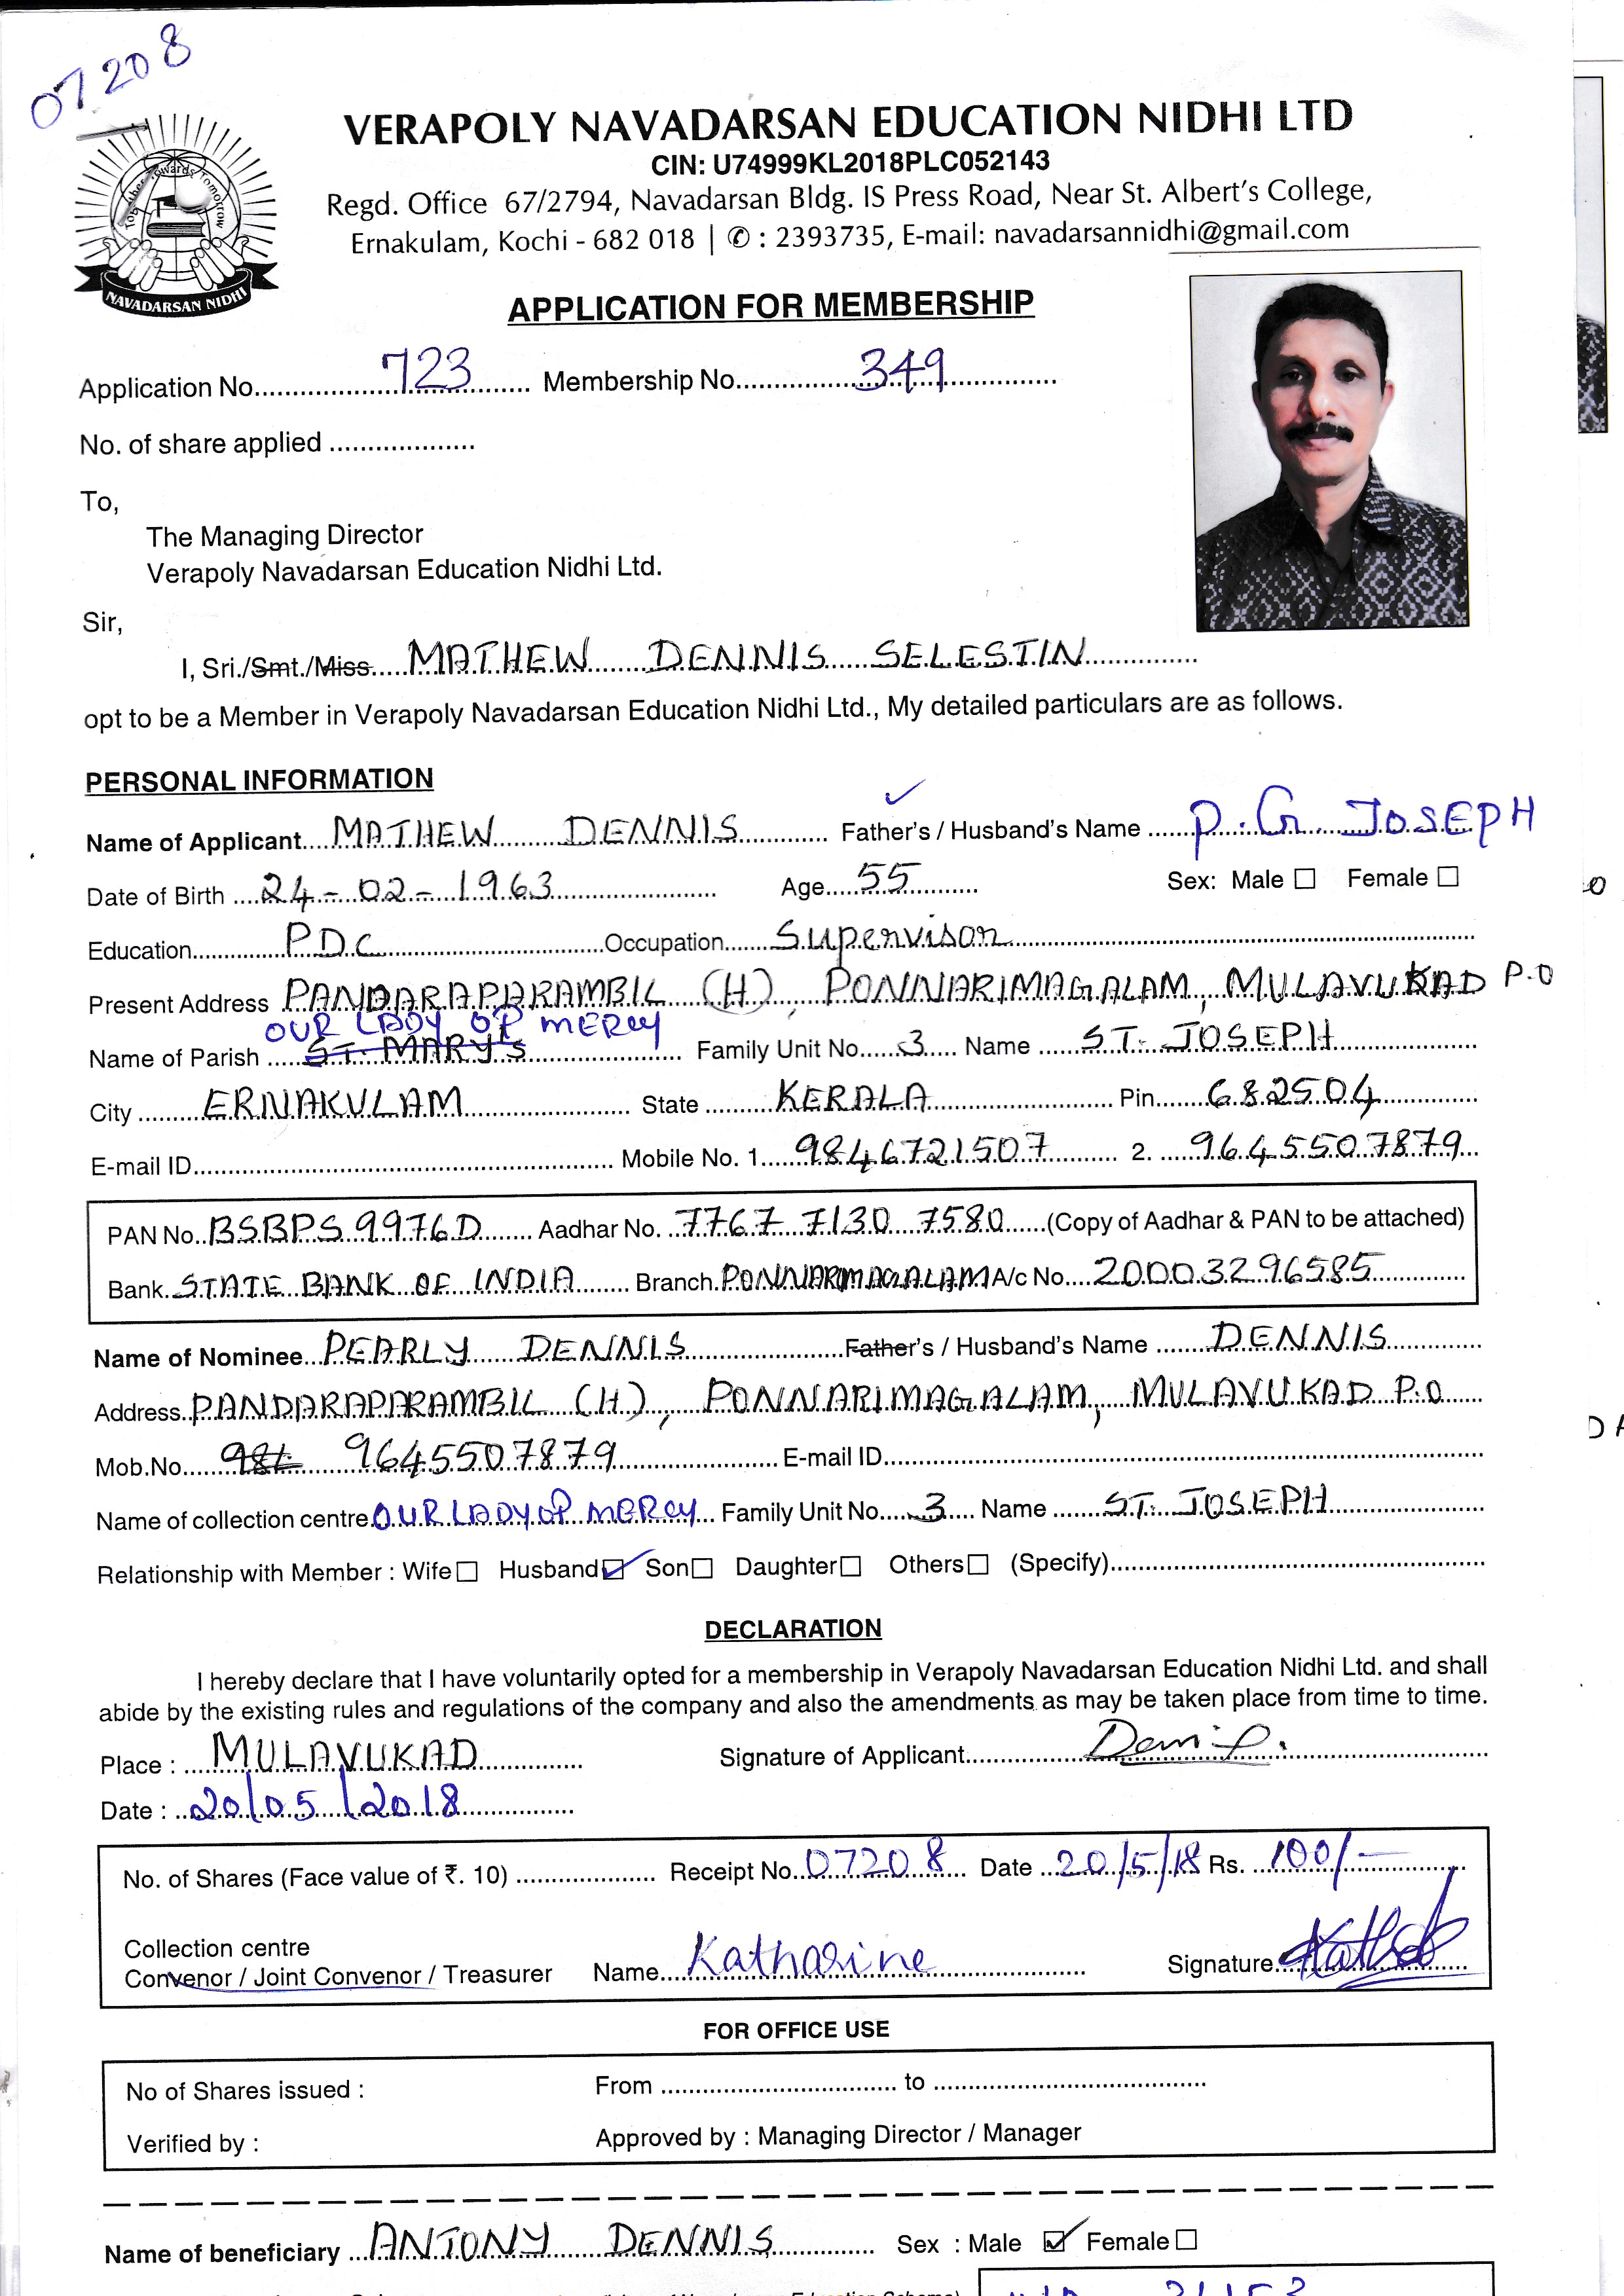 07208
Together Towards Tomorrow
NAVADARSAN NIDHI
VERAPOLY NAVADARSAN EDUCATION NIDHI LTD
CIN: U74999KL2018PLC052143
Regd. Office 67/2794, Navadarsan Bldg. IS Press Road, Near St. Albert's College,
Ernakulam, Kochi - 682 018 | ✆ : 2393735, E-mail: navadarsannidhi@gmail.com
APPLICATION FOR MEMBERSHIP
Application No. 723 Membership No. 349
No. of share applied
To,
The Managing Director
Verapoly Navadarsan Education Nidhi Ltd.
Sir,
I, Sri./Smt./Miss MATHEW DENNIS SELESTIN
opt to be a Member in Verapoly Navadarsan Education Nidhi Ltd., My detailed particulars are as follows.
PERSONAL INFORMATION
Name of Applicant MATHEW DENNIS Father's / Husband's Name P.G. JOSEPH
Date of Birth 24-02-1963 Age 55 Sex: Male ☐ Female ☐
Education PDC Occupation Supervison
Present Address PANDARAPARAMBIL (H), PONNARIMAGALAM, MULAVUKAD P.O
OUR LADY OF MERCY
Name of Parish ST. MARY'S Family Unit No. 3 Name ST. JOSEPH
City ERNAKULAM State KERALA Pin 682504
E-mail ID Mobile No. 1. 9846721507 2. 9645507879
PAN No. BSBPS9976D Aadhar No. 7767 7130 7580 (Copy of Aadhar & PAN to be attached)
Bank STATE BANK OF INDIA Branch PONNARIMAGALAM A/c No. 20003296585
Name of Nominee PEARLY DENNIS Father's / Husband's Name DENNIS
Address PANDARAPARAMBIL (H), PONNARIMAGALAM, MULAVUKAD P.O
Mob.No. 984 9645507879 E-mail ID
Name of collection centre OUR LADY OF MERCY Family Unit No. 3 Name ST. JOSEPH
Relationship with Member : Wife ☐ Husband ☑ Son ☐ Daughter ☐ Others ☐ (Specify)
DECLARATION
I hereby declare that I have voluntarily opted for a membership in Verapoly Navadarsan Education Nidhi Ltd. and shall
abide by the existing rules and regulations of the company and also the amendments as may be taken place from time to time.
Place : MULAVUKAD Signature of Applicant
Date : 20/05/2018
No. of Shares (Face value of ₹. 10) Receipt No. 07208 Date 20/5/18 Rs. 100/-
Collection centre
Convenor / Joint Convenor / Treasurer Name Katharine Signature
FOR OFFICE USE
No of Shares issued : From to
Verified by : Approved by : Managing Director / Manager
Name of beneficiary ANTONY DENNIS Sex : Male ☑ Female ☐